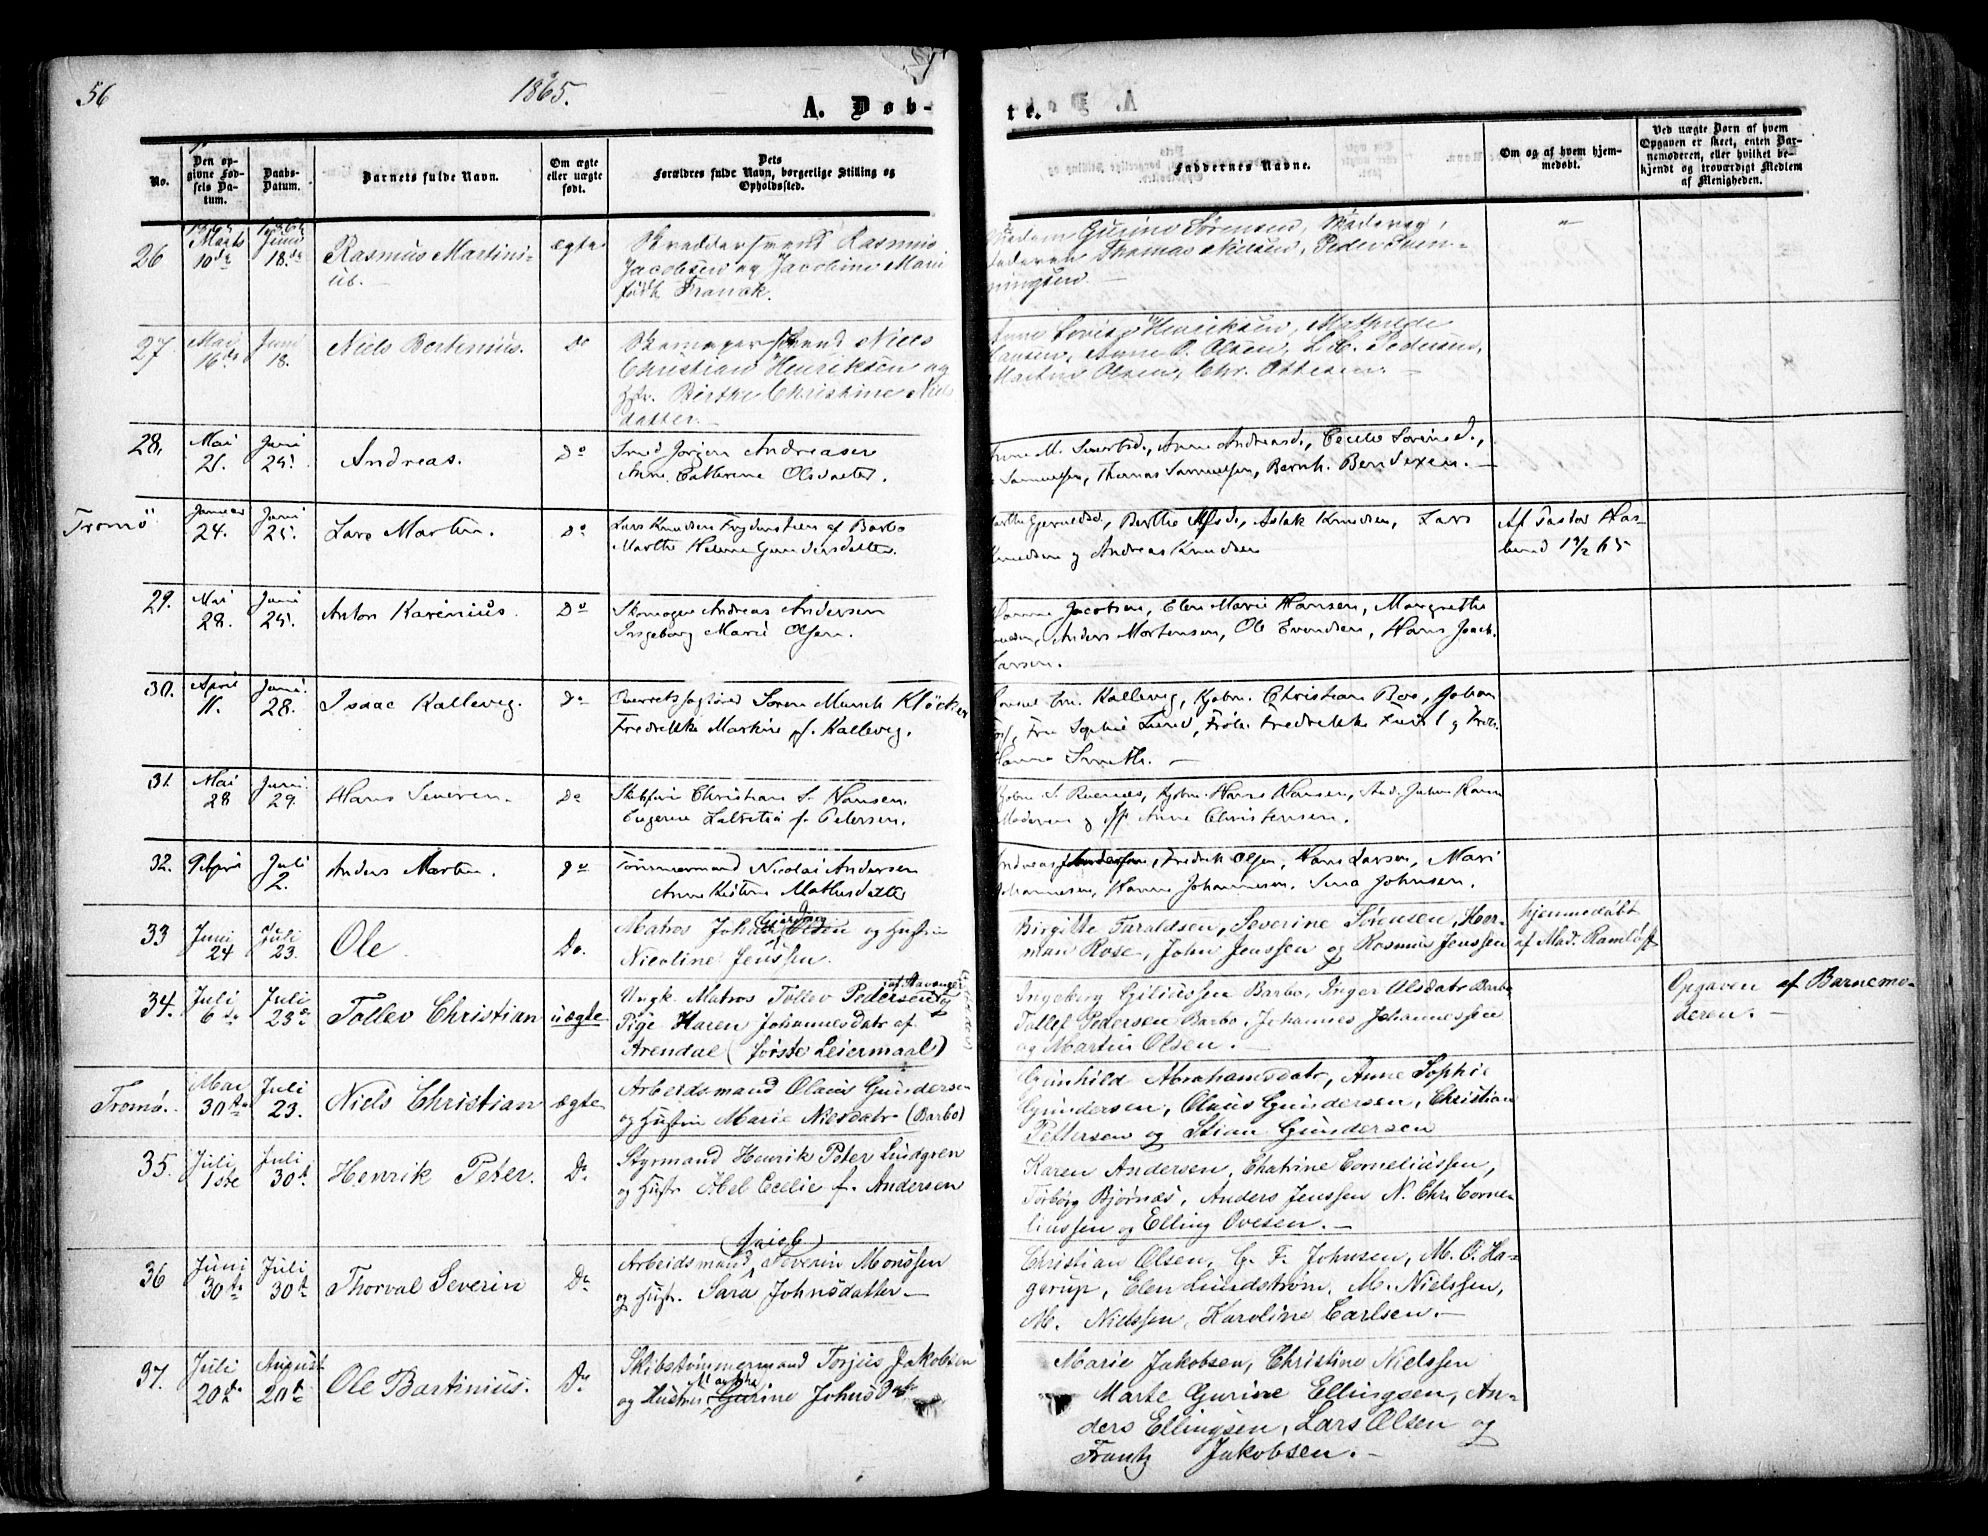 56
1865.
A. Døb-
te.
No.
Den op-
givne Fød-
sels Da-
tum.
Daabs-
Datum.
Barnets fulde Navn.
Om ægte
eller uægte
født.
Dets
Forældres fulde Navn, borgerlige Stilling og
Opholdssted.
Faddernes Navne.
Om og af hvem hjem-
medøbt.
Ved uægte Børn af hvem
Opgaven er skeet, enten Bar-
nemoderen, eller hvilket be-
kjendt og troværdigt Medlem
af Menigheden.
26
1865 Marts 10de
1865 Juni 18de
Rasmus Martini-
us.
ægte
Skræddersvend Rasmus
Jacobsen og Jacobine Marie
født Franck.
Gurine Sørensen,
Faderen Thomas Nielsen, Peder
27
Mai 16de
Juni 18.
Niels Bertinius.
Do
Skomagersvend Niels
Christian Henriksen og
Hstr. Birthe Christine Niels
datter.
Anne Lovise Henriksen, Mathilde
Hansen, Anne P. Olsen, L. C. Pedersen,
Martin Olsen, Chr. Ottesen.
28.
Mai 21.
Juni 25.
Andreas.
Do
Smed Jørgen Andreasen
Anne Cathrine Olsdatter.
Anne M. Andreasd., Cecilie Sørensd.,
Samuelsen, Thomas Samuelsen, Bernh. Bendixen.
Tromø
Januar 24.
Juni 25.
Lars Martin.
Do
Lars Knudsen Frydensteen af Barbo
Marthe Helene Gundersdatter.
Berthe Aslak Knudsen, Lars
Knudsen og Andreas Knudsen
Af Pastor Has-
lund 19/2 65
29.
Mai 28.
Juni 25.
Anton Karinius.
Do
Skomager Andreas Andersen
Ingeborg Marie Olsen.
Hanne Jacobsen, Elen Marie Hansen, Margrethe
Anders Mortensen, Ole Evendsen, Hans Jacob
Larsen.
30.
April 11.
Juni 28.
Isaac Kallevig.
Do
Overretssagfører Søren Munch Kløcker
Fredrikke Martine f. Kallevig.
Consul Chr. Kallevig, Kjøbm. Christian Boe, Johan
Fru Sophie Lund, Frøken Fredrikke
Hanna Smith.
31.
Mai 28
Juni 29.
Hans Severin.
Do
Skibsfører Christian S. Hansen.
Eugenie f. Petersen.
Kjøbm. S. Kjøbm. Hans Hansen,
Anne Christensen.
32.
9 April
Juli 2.
Anders Martin.
Do
Tømmermand Nicolai Andersen
Anne Kistine Mathisdatter
Andreas Andersen, Fredrik Olsen, Hans Larsen, Mari
Johannesen, Hanne Johannesen. Sina Johnsen.
33
Juni 24
Juli 23.
Ole
Do.
Matros Johan Olsen og Hustru
Nicoline Jenssen.
Birgitte Taraldsen, Severine Sørensen, Her-
man Rose, John Jenssen og Rasmus Jenssen
hjemmedøbt
af Mad. Ramløff
34.
Juli 6de
Juli 23de
Tollev Christian
uægte
Ungk. Matros Tollev Pedersen af Stavanger og
Pige Karen Johannesdatr af
Arendal (første Leiermaal)
Ingeborg Giliussen Barbo, Inger Alsdatr Barbo
Tollef Pedersen Barbo, Johannes Johannessen
og Martin Olsen.
Opgaven af Barnemo-
deren.
Tromø.
Mai 30te
Juli 23.
Niels Christian
ægte
Arbeidsmand Olaus Gundersen
og Hustru Marie Nielsdatr (Barbo)
Gunhild Abrahamsdatr, Anne Sophie
Gundersen, Olaus Gundersen, Christian
Pettersen og Stian Gundersen
35.
Juli 1ste
Juli 30t.
Henrik Peter.
Do
Styrmand Henrik Peter Lindgren
og Hustr. Abel Cecilie f. Andersen
Karen Andersen, Chatrine Corneliussen,
Torborg Bjørnæs, Anders Jenssen N. Chr. Corne-
liussen og Elling Ovesen.
36
Juni 30te
Juli 30t
Thorval Severin
Do
Arbeidsmand Severin Monssen
og Hustr. Sara Johnsdatter
Christian Olsen, G. F. Johnsen, M. O. Ha-
gerup, Elen Lundstrøm, M. Nielssen,
M. Nielssen, Karoline Carlsen.
37.
Juli 20de
August 20te
Ole Bartinius.
Do
Skibstømmermand Torjus Jakobsen
og Hustru Martha Gurine Johnsdatr
Marie Jakobsen, Christine Nielssen
Marte Gurine Ellingsen, An-
ders Ellingsen, Lars Olsen og
Frantz Jakobsen.